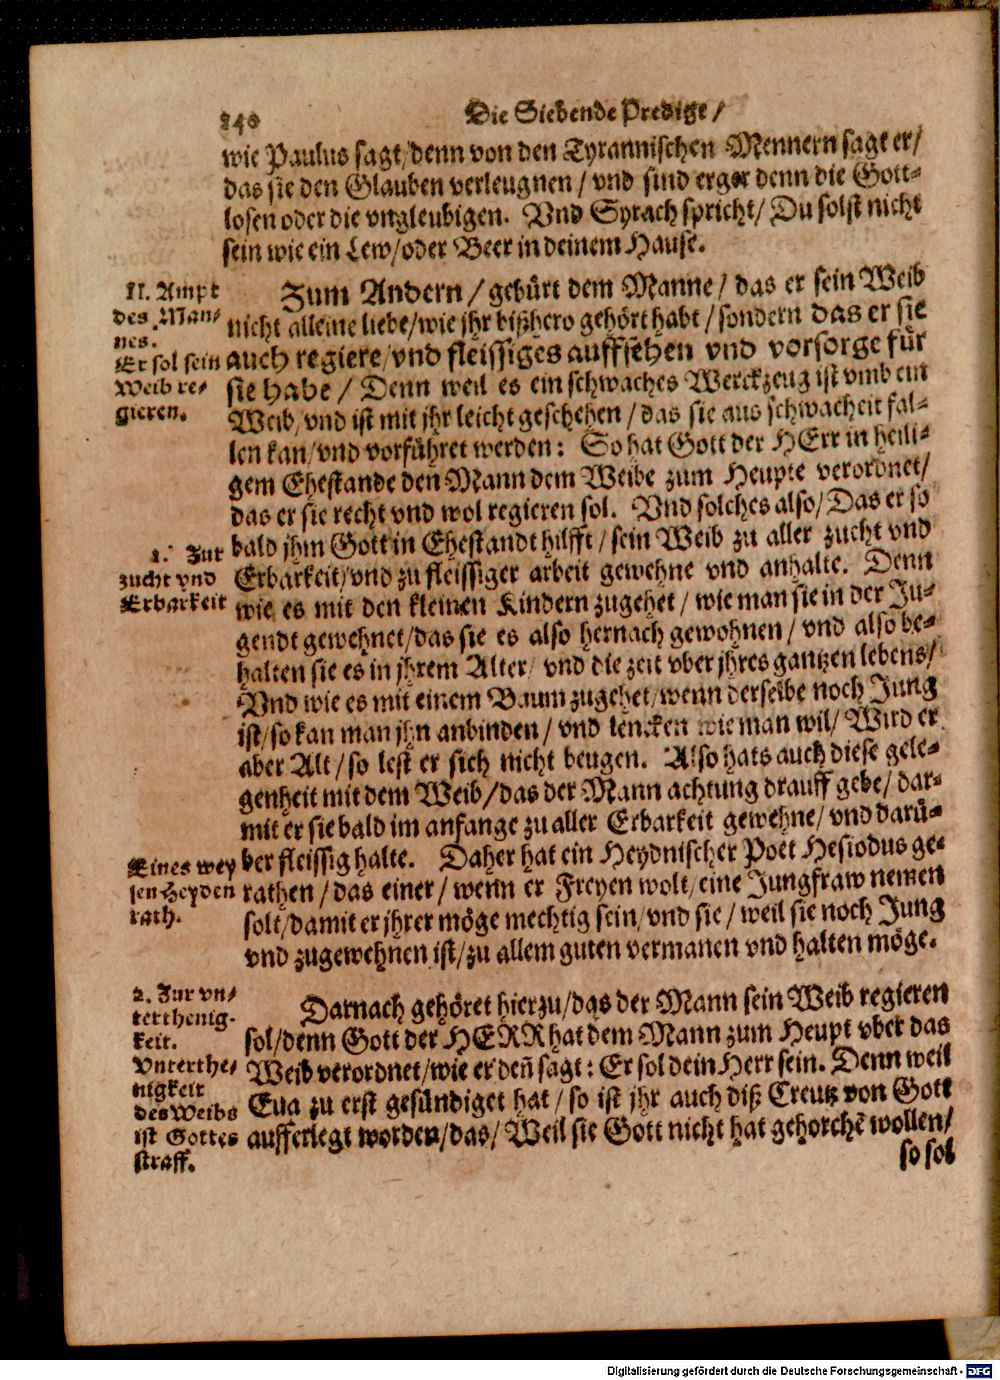 240
Die Siebende Predigt /
wie Paulus sagt/denn von den Tyrannischen Mennern sagt er/
das sie den Glauben verleugnen / vnd sind erger denn die Gott-
losen oder die vngleubigen. Vnd Syrach spricht/ Du solst nicht
sein wie ein Lew/oder Beer in deinem Hause.
II. Ampt
des Man-
nes.
Er sol sein
Weib re-
gieren.
Zum Andern / gebürt dem Manne / das er sein Weib
nicht alleine liebe/wie jhr bißhero gehört habt / sondern das er sie
auch regiere/vnd fleissiges auffsehen vnd vorsorge für
sie habe / Denn weil es ein schwaches Werckzeug ist vmb ein
Weib/vnd ist mit jhr leicht geschehen / das sie aus schwacheit fal-
len kan/vnd vorführet werden: So hat Gott der HErr in heili-
gem Ehestande den Mann dem Weibe zum Heupte verordnet/
das er sie recht vnd wol regieren sol. Vnd solches also/ Das er so
1. Zur
zucht vnd
Erbarkeit
bald jhm Gott in Ehestandt hilfft / sein Weib zu aller zucht vnd
Erbarkeit/vnd zu fleissiger arbeit gewehne vnd anhalte. Denn
wie es mit den kleinen Kindern zugehet / wie man sie in der Ju-
gendt gewehnet/das sie es also hernach gewohnen / vnd also be-
halten sie es in jhrem Alter/ vnd die zeit vber jhres gantzen lebens/
Vnd wie es mit einem Baum zugehet/wenn derselbe noch Jung
ist/so kan man jhn anbinden / vnd lencken wie man wil/ Wird er
aber Alt / so lest er sich nicht beugen. Also hats auch diese gele-
genheit mit dem Weib/das der Mann achtung drauff gebe/ dar-
mit er sie bald im anfange zu aller Erbarkeit gewehne/ vnd darü-
Eines wey
sen Heyden
rath.
ber fleissig halte. Daher hat ein Heydnischer Poët Hesiodus ge-
rathen / das einer / wenn er Freyen wolt/eine Jungfraw nemen
solt/damit er jhrer möge mechtig sein/vnd sie / weil sie noch Jung
vnd zugewehnen ist/zu allem guten vermanen vnd halten möge.
2. Zur vn-
terthenig-
keit.
Vnterthe-
nigkeit
des Weibs
ist Gottes
straff.
Darnach gehöret hierzu/das der Mann sein Weib regieren
sol/denn Gott der HERR hat dem Mann zum Heupt vber das
Weib verordnet/wie er deñ sagt: Er sol dein Herr sein. Denn weil
Eua zu erst gesündiget hat / so ist jhr auch diß Creutz von Gott
aufferlegt worden/das/ Weil sie Gott nicht hat gehorchē wollen/
so sol
Digitalisierung gefördert durch die Deutsche Forschungsgemeinschaft - DFG